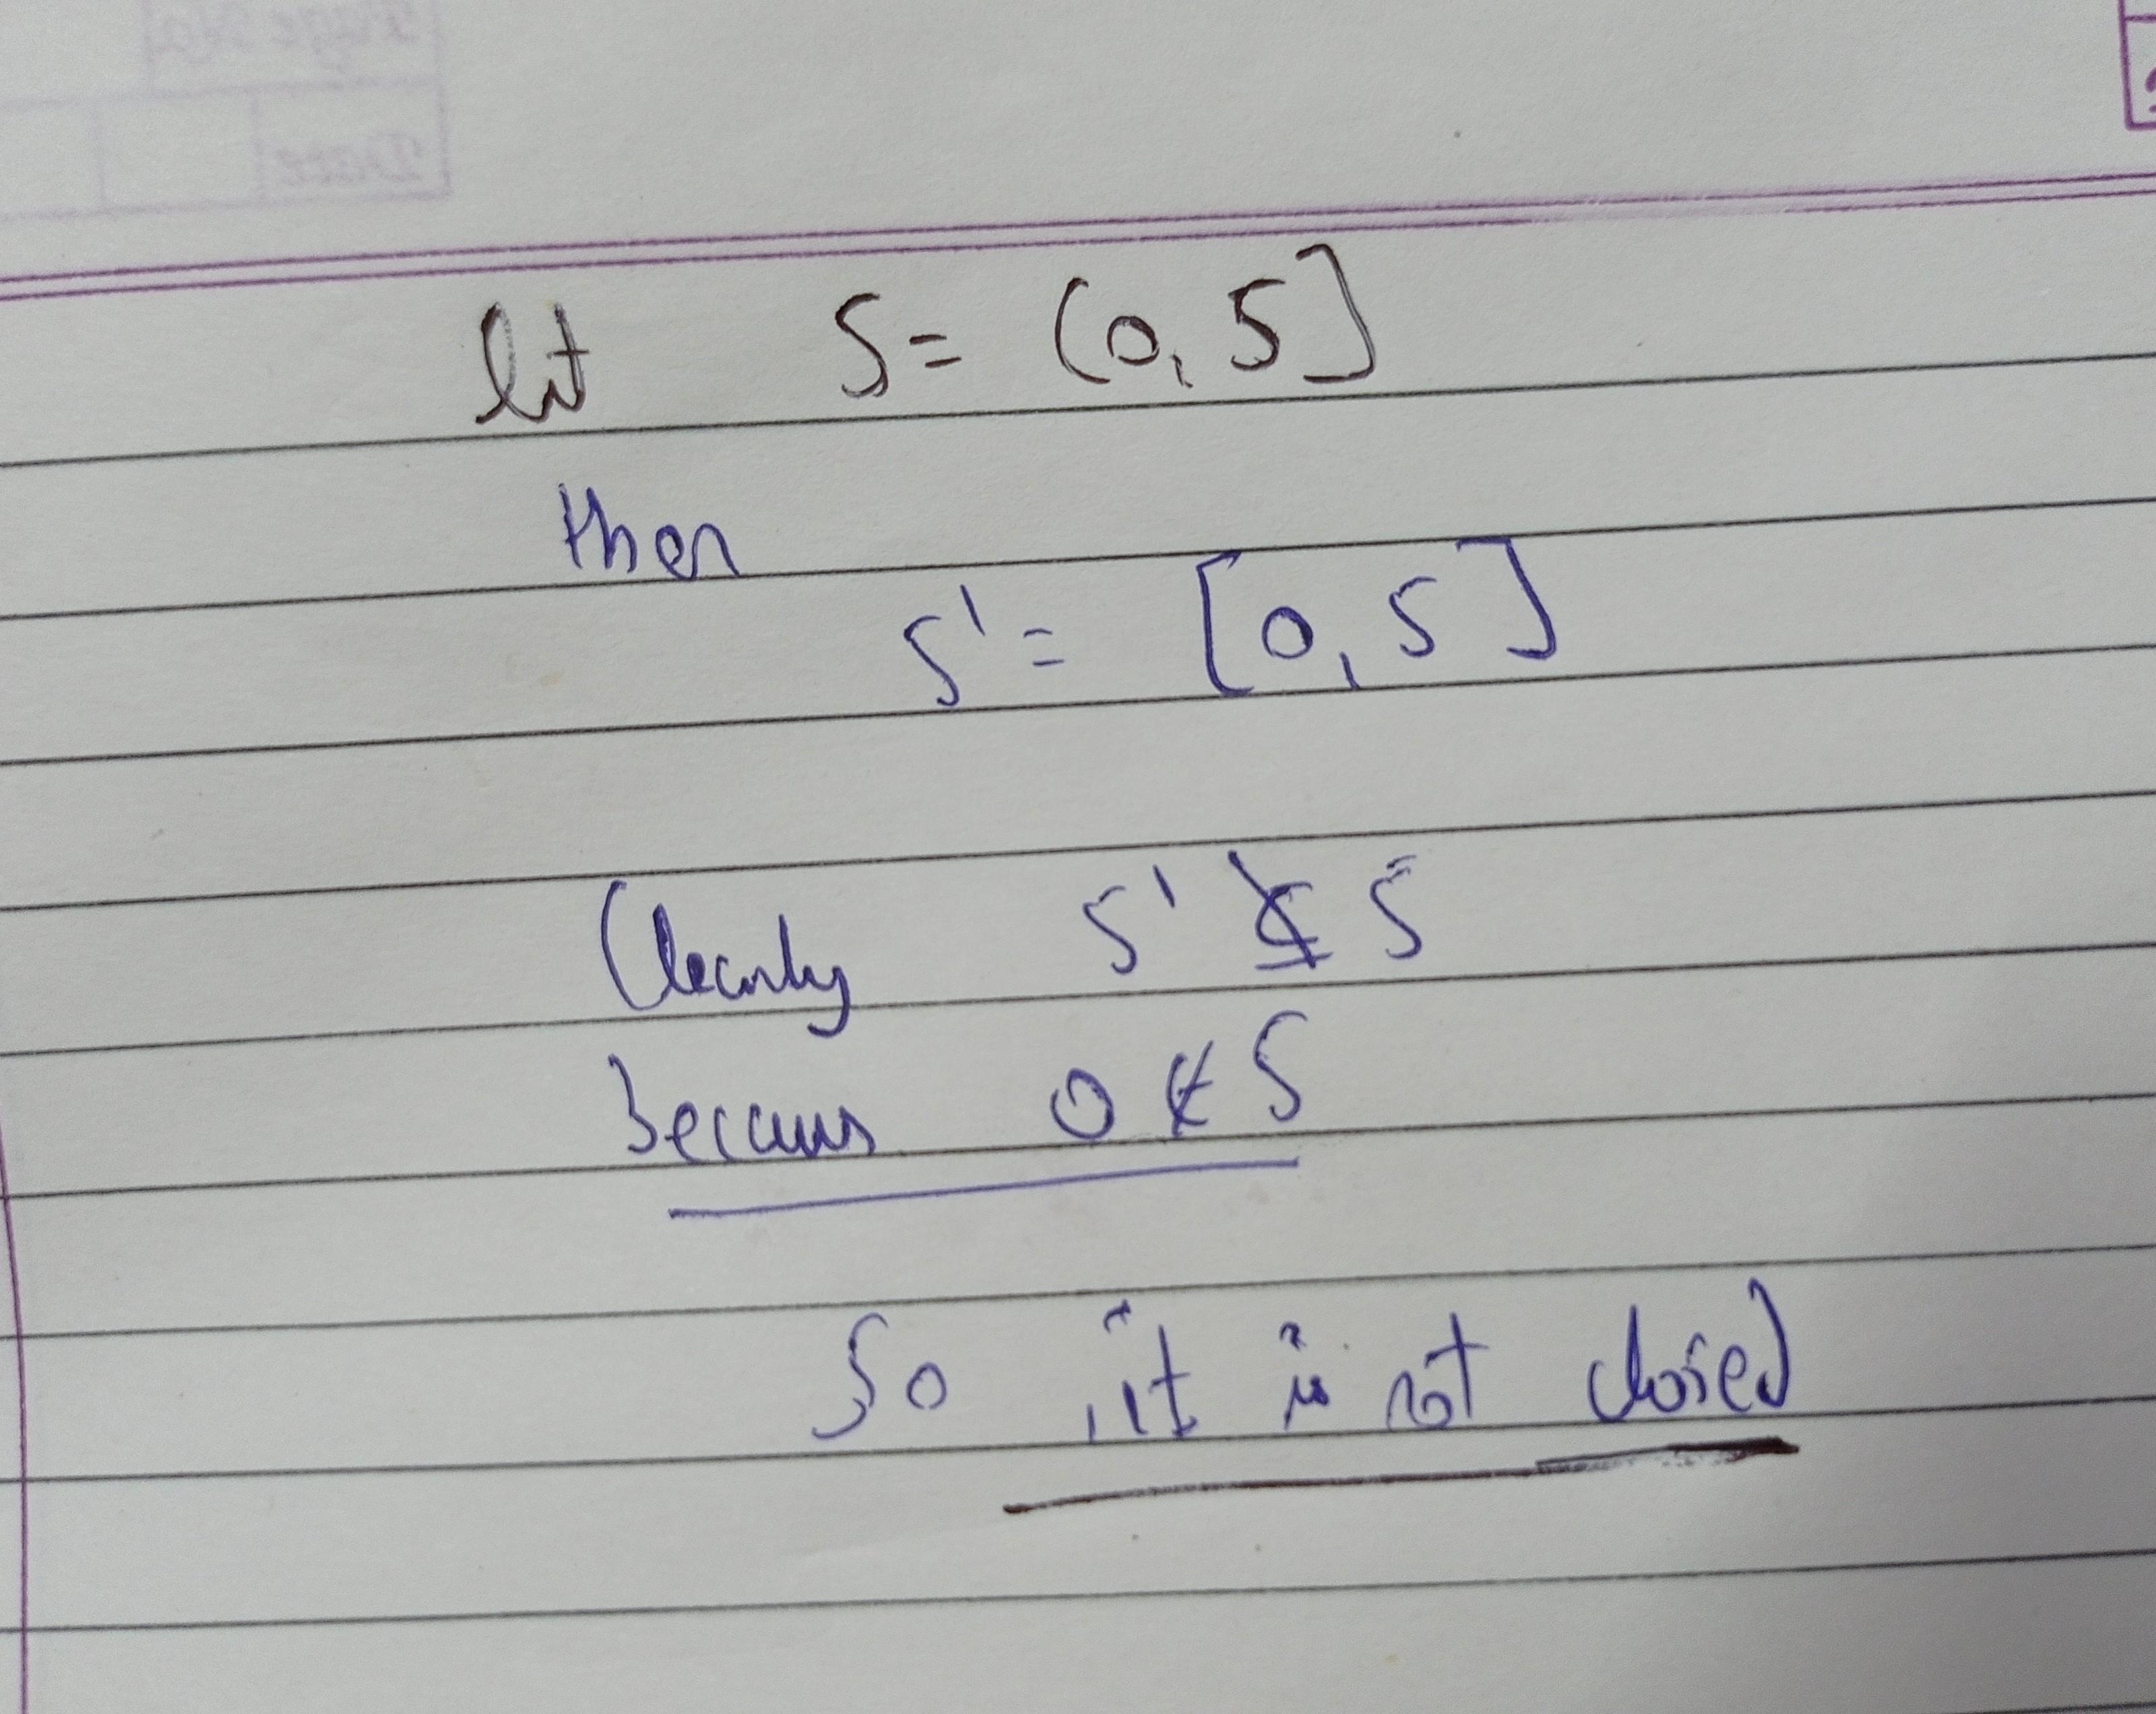 let S = (0, 5]
then
S' = [0, 5]
Clearly S' ⊈ S
becaus 0 ∉ S
So it is not closed